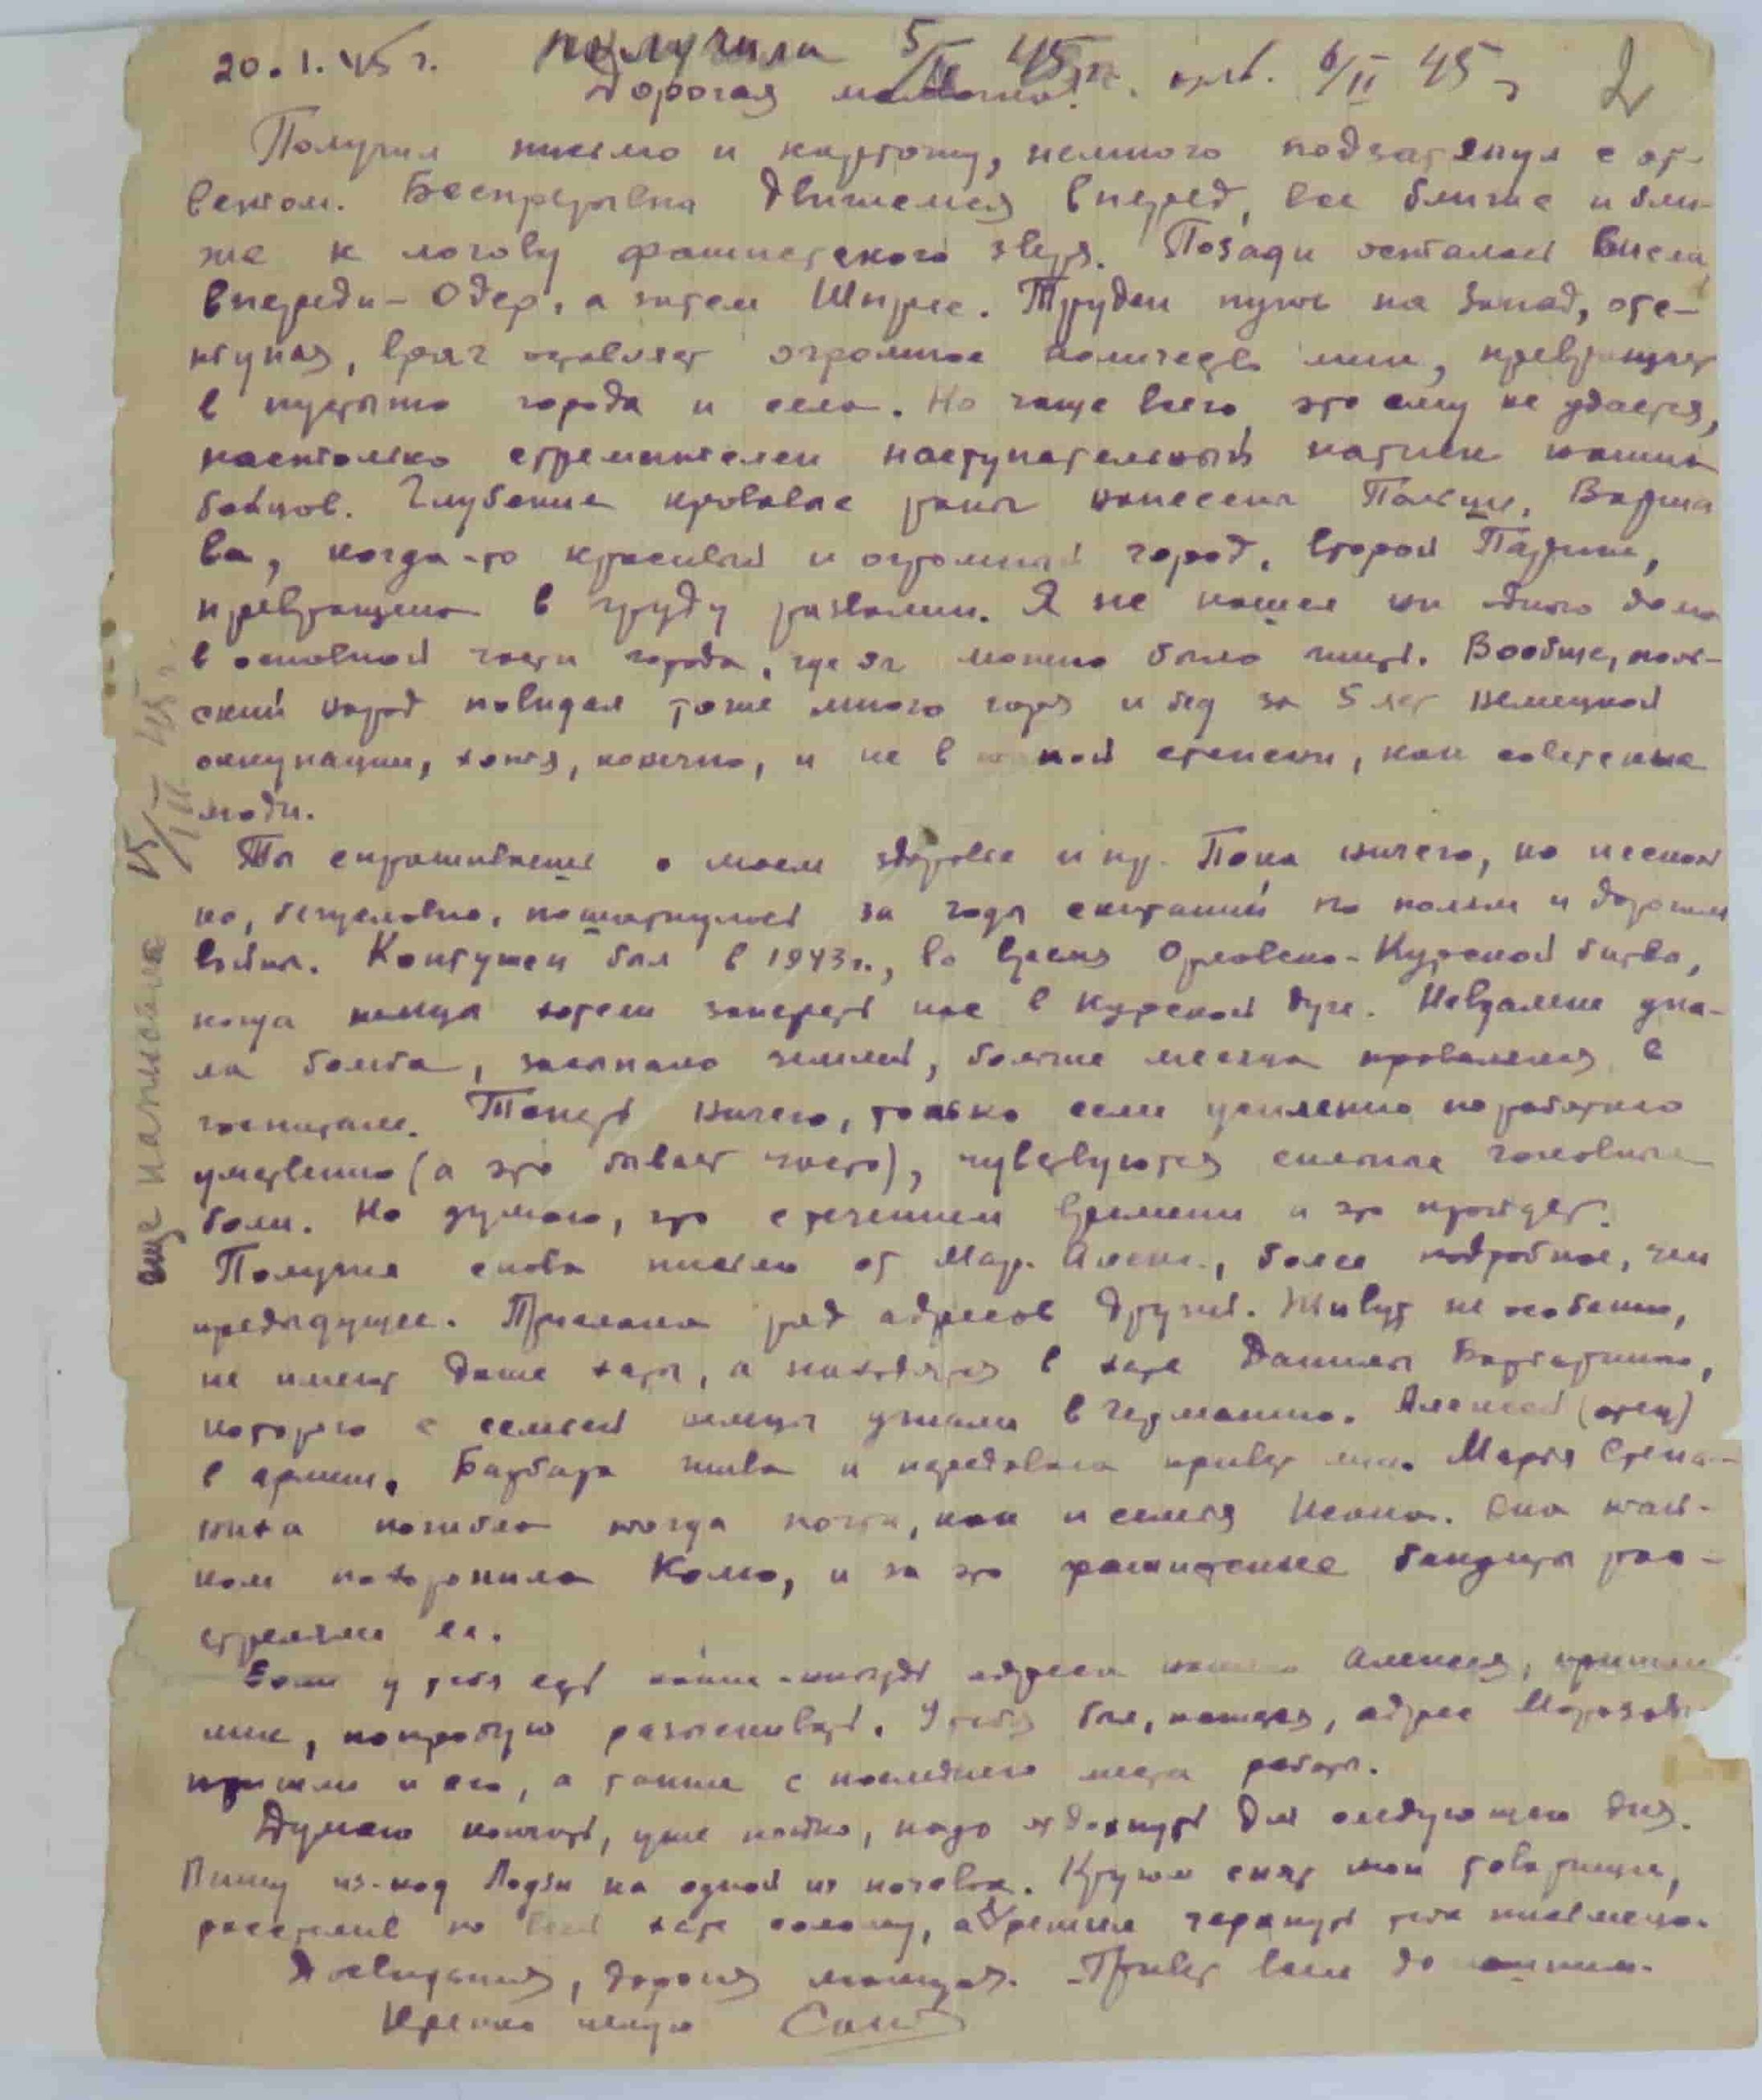 20.1.45 г. получила 5/II 45 г. отв. 6/II 45 г 2
Дорогая мамочка!
Получил письмо и карточку, немного подзатянул с от-
ветом. Беспрерывно движемся вперед, все ближе и бли-
же к логову фашистского зверя. Позади осталась Висла,
впереди - Одер, а затем Шпрее. Труден путь на запад, отс-
тупая, враг оставляет огромное количество мин, превращает
в пустыню города и села. Но чаще всего это ему не удается,
настолько стремителен наступательный натиск наших
бойцов. Глубокие кровавые раны нанесены Польше. Варша
ва, когда-то красивый и огромный город, второй Париж,
превращена в груду развалин. Я не нашел ни одного дома
в основной части города, где бы можно было жить. Вообще, поль-
ский народ повидал тоже много горя и бед за 5 лет немецкой
оккупации, хотя, конечно, и не в такой степени, как советские
люди.
Ты спрашиваешь о моем здоровье и пр. Пока ничего, но нескол
ко, безусловно, пошатнулось за годы скитаний по полям и дорогам
войны. Контужен был в 1943 г., во время Орловско-Курской битвы,
когда немцы хотели запереть нас в Курской дуге. Невдалеке упа-
ла бомба, засыпало землей, больше месяца провалялся в
госпитале. Теперь ничего, только если усиленно поработаю
умственно (а это бывает часто), чувствуются сильные головные
боли. Но думаю, что с течением времени и это пройдет.
Получил снова письмо от Мар. Алекс., более подробное, чем
предыдущее. Прислала ряд адресов друзей. Живут не особенно,
не имеют даже хаты, а находятся в хате Данилы
которого с семьей немцы угнали в Германию. Алексей (отец)
в армии. Барбара жива и передавала привет мне. Мария Степа-
ниха погибла тогда почти, как и семья Исака. Она тай-
ком похоронила Колю, и за это фашистские бандиты рас-
стреляли ее.
Если у тебя есть какие-нибудь адреса нашего Алексея, пришли
мне, попробую разыскивать. У тебя был, кажется, адрес Морозова
пришли и его, а также с последнего места работы.
Думаю кончать, уже поздно, надо отдохнуть для следующего дня.
Пишу из-под Лодзи на одной из ночевок. Кругом спят мои товарищи,
расстелив по всей хате солому, а я решил черкнуть тебе письмецо.
До свидания, дорогая мамочка. Привет всем домашним.
Крепко целую Саша
еще написала 15/III 45 г.